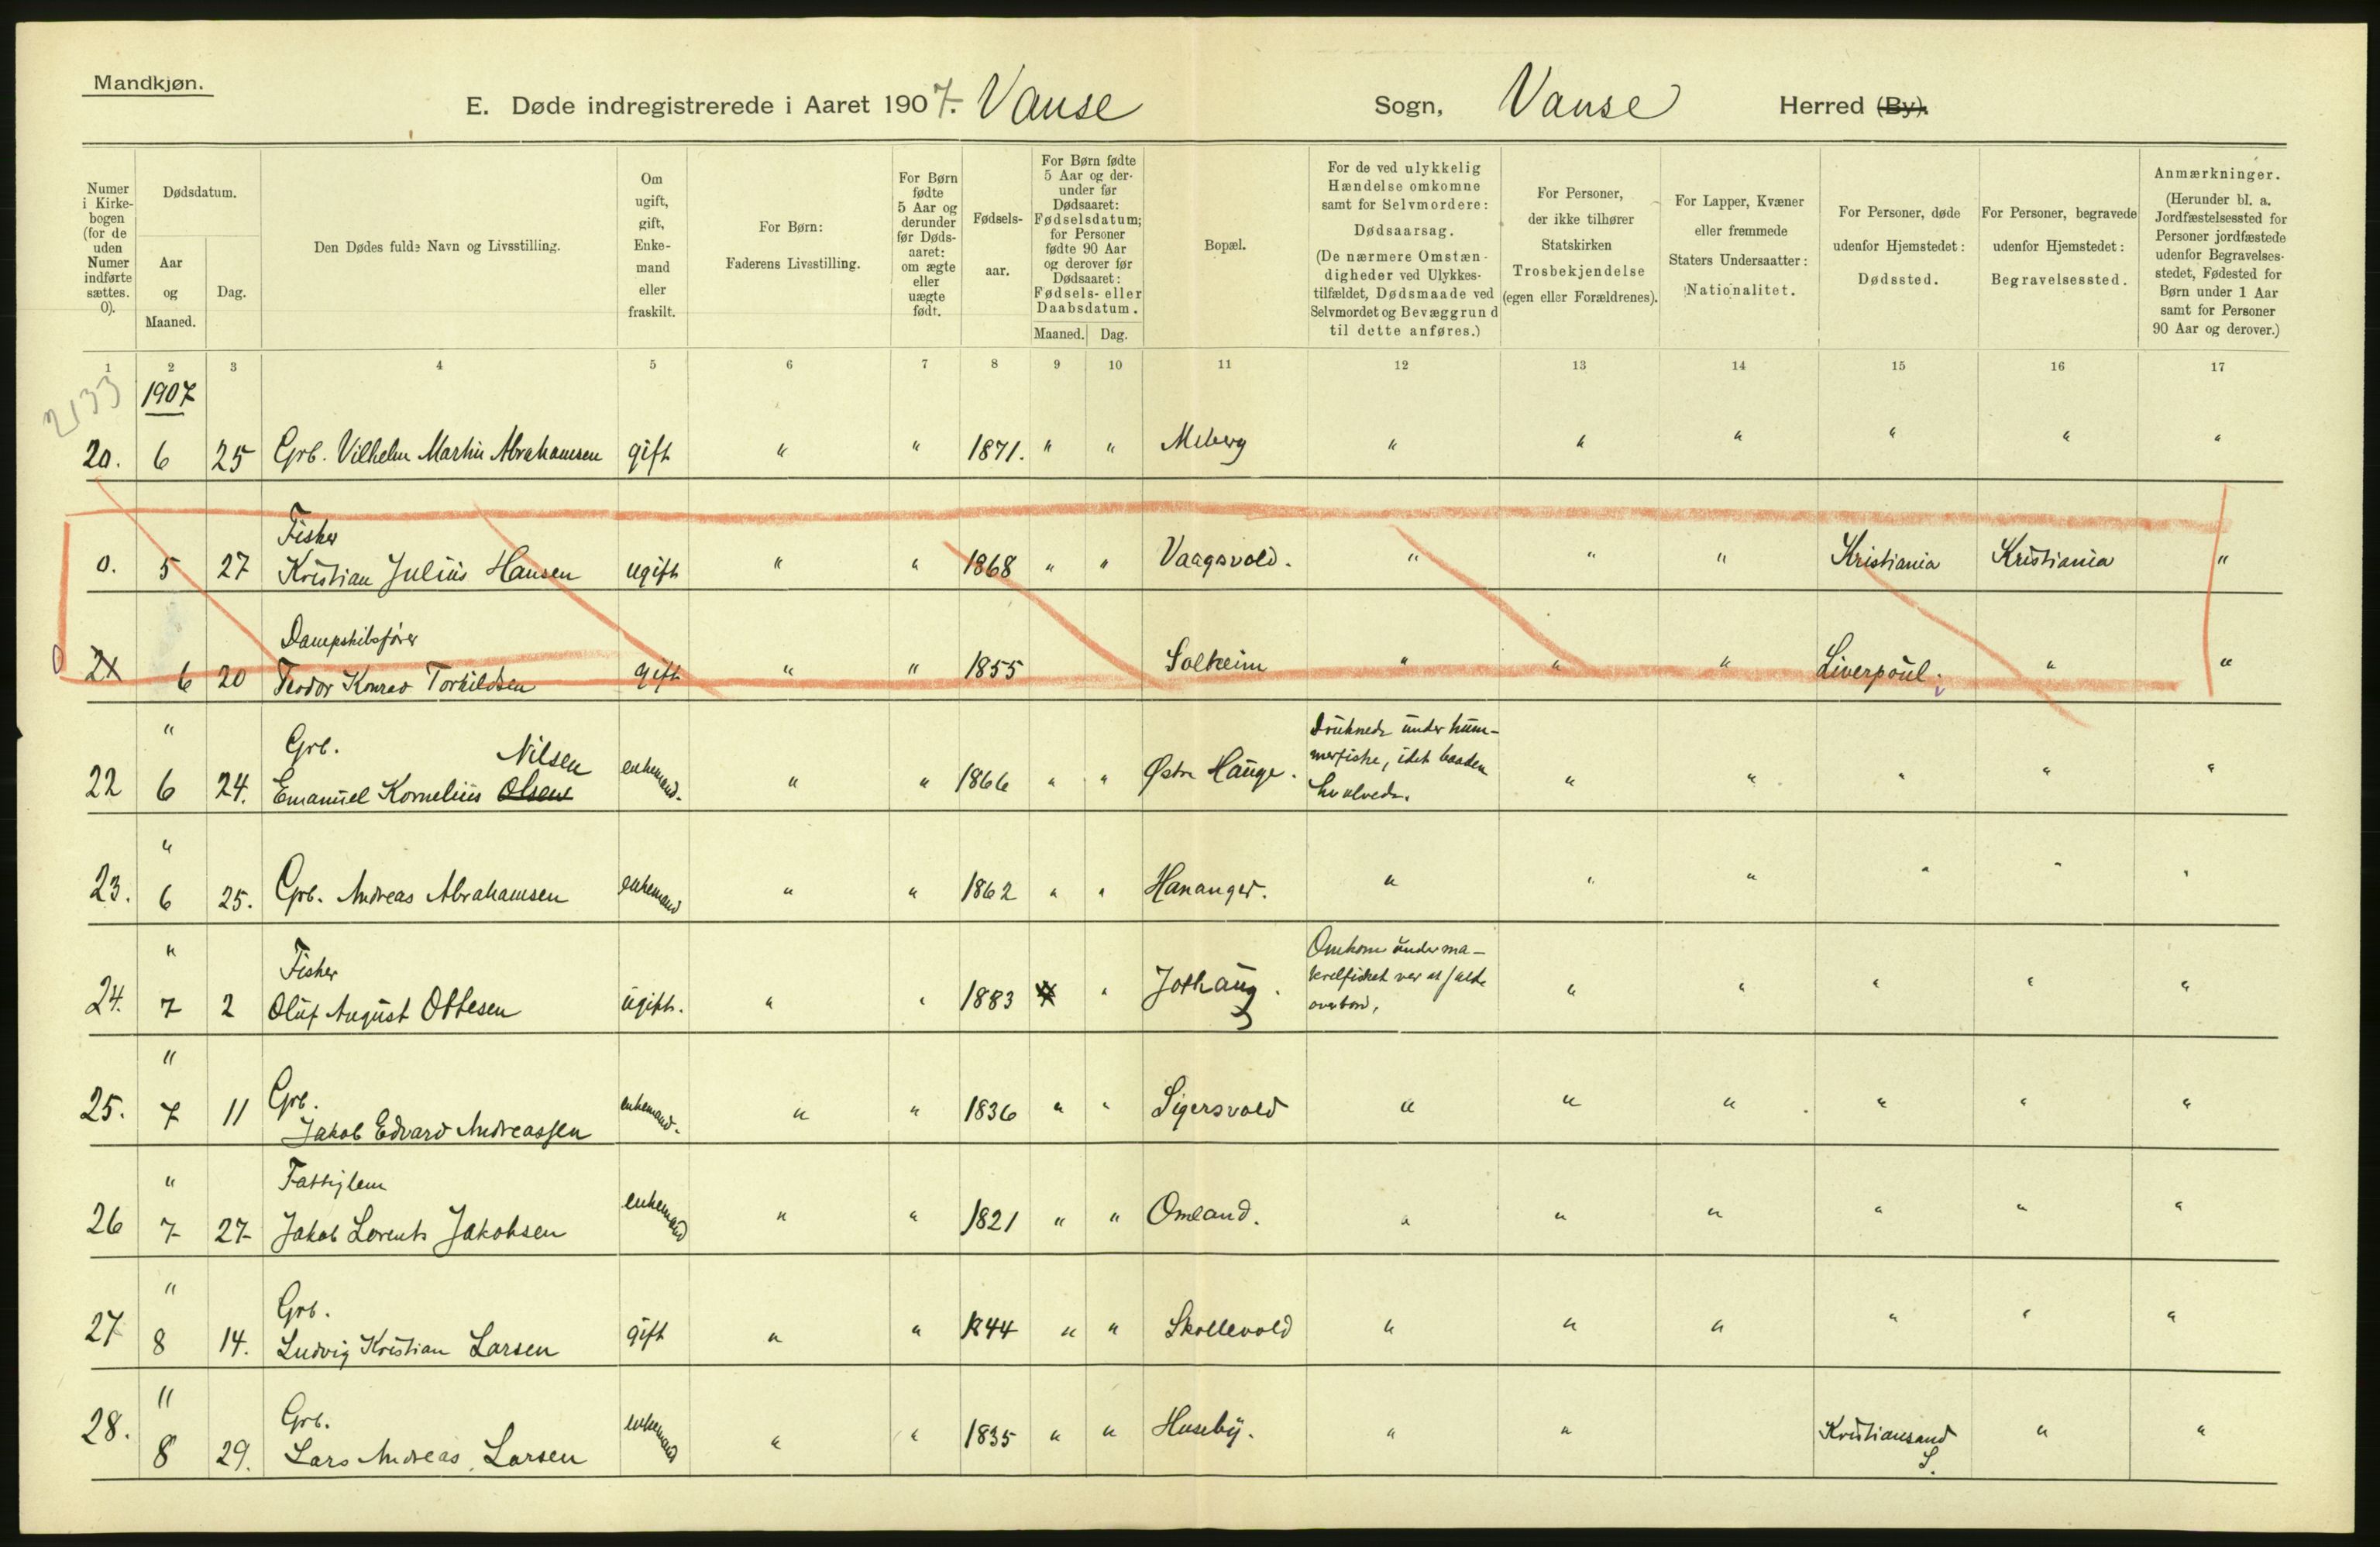 Mandkjøn.
E. Døde indregistrerede i Aaret 1907. Vanse Sogn, Vanse Herred (By).
Numer i Kirkebogen (for de uden Numer indførte sættes. 0).
Dødsdatum.
Aar og Maaned.
Dag.
Den Dødes fulde Navn og Livsstilling.
Om ugift, gift, Enkemand eller fraskilt.
For Børn: Faderens Livsstilling.
For Børn fødte 5 Aar og derunder før Dødsaaret: om ægte eller uægte født.
Fødselsaar.
For Børn fødte 5 Aar og derunder før Dødsaaret: Fødselsdatum; for Personer fødte 90 Aar og derover før Dødsaaret: Fødsels- eller Daabsdatum.
Maaned. Dag.
Bopæl.
For de ved ulykkelig Hændelse omkomne samt for Selvmordere: Dødsaarsag. (De nærmere Omstændigheder ved Ulykkestilfældet, Dødsmaade ved Selvmordet og Bevæggrund til dette anføres.)
For Personer, der ikke tilhører Statskirken Trosbekjendelse (egen eller Forældrenes).
For Lapper, Kvæner eller fremmede Staters Undersaatter: Nationalitet.
For Personer, døde udenfor Hjemstedet: Dødssted.
For Personer, begravede udenfor Hjemstedet: Begravelsessted.
Anmærkninger. (Herunder bl. a. Jordfæstelsessted for Personer jordfæstede udenfor Begravelsesstedet, Fødested for Børn under 1 Aar samt for Personer 90 Aar og derover.)
1 2 3 4 5 6 7 8 9 10 11 12 13 14 15 16 17
2133
1907
20. 6 25 Grb. Vilhelm Martin Abrahamsen gift " " 1871. " " Meberg " " " " " "
Fisker
0. 5 27 Kristian Julius Hansen ugift " " 1868 " " Vaagsvold. " " " Kristiania Kristiania "
Dampskibsfører
0 21 6 20 Teodor Konrad Torkildsen gift " " 1855 Solheim " " " Liverpoul. " "
" Grb. Nilsen Druknede under hum-
22 6 24. Emanuel Kornelius Olsen enkemand. " " 1866 " " Østre Hauge. merfiske, idet baaden " " " " "
hvalvede.
"
23. 6 25. Grb. Andreas Abrahamsen enkemand " " 1862 " " Hananger. " " " " " "
" Fisker Omkom under ma-
24. 7 2 Oluf August Ottesen ugift. " " 1883 " Jothaug. krelfisket ved at falde " " " " "
overbord.
" Grb.
25. 7 11 Jakob Edvard Andreassen enkemand. " " 1836 " " Sigersvold " " " " " "
" Fattiglem
26 7 27 Jakob Lorents Jakobsen enkemand " " 1821 " " Omland. " " " " " "
" Grb.
27 8 14. Ludvig Kristian Larsen gift " " 1844 " " Skollevold " " " " " "
" Grb.
28. 8 29. Lars Andreas Larsen enkemand " " 1835 " " Huseby. " " Kristiansand S. " "